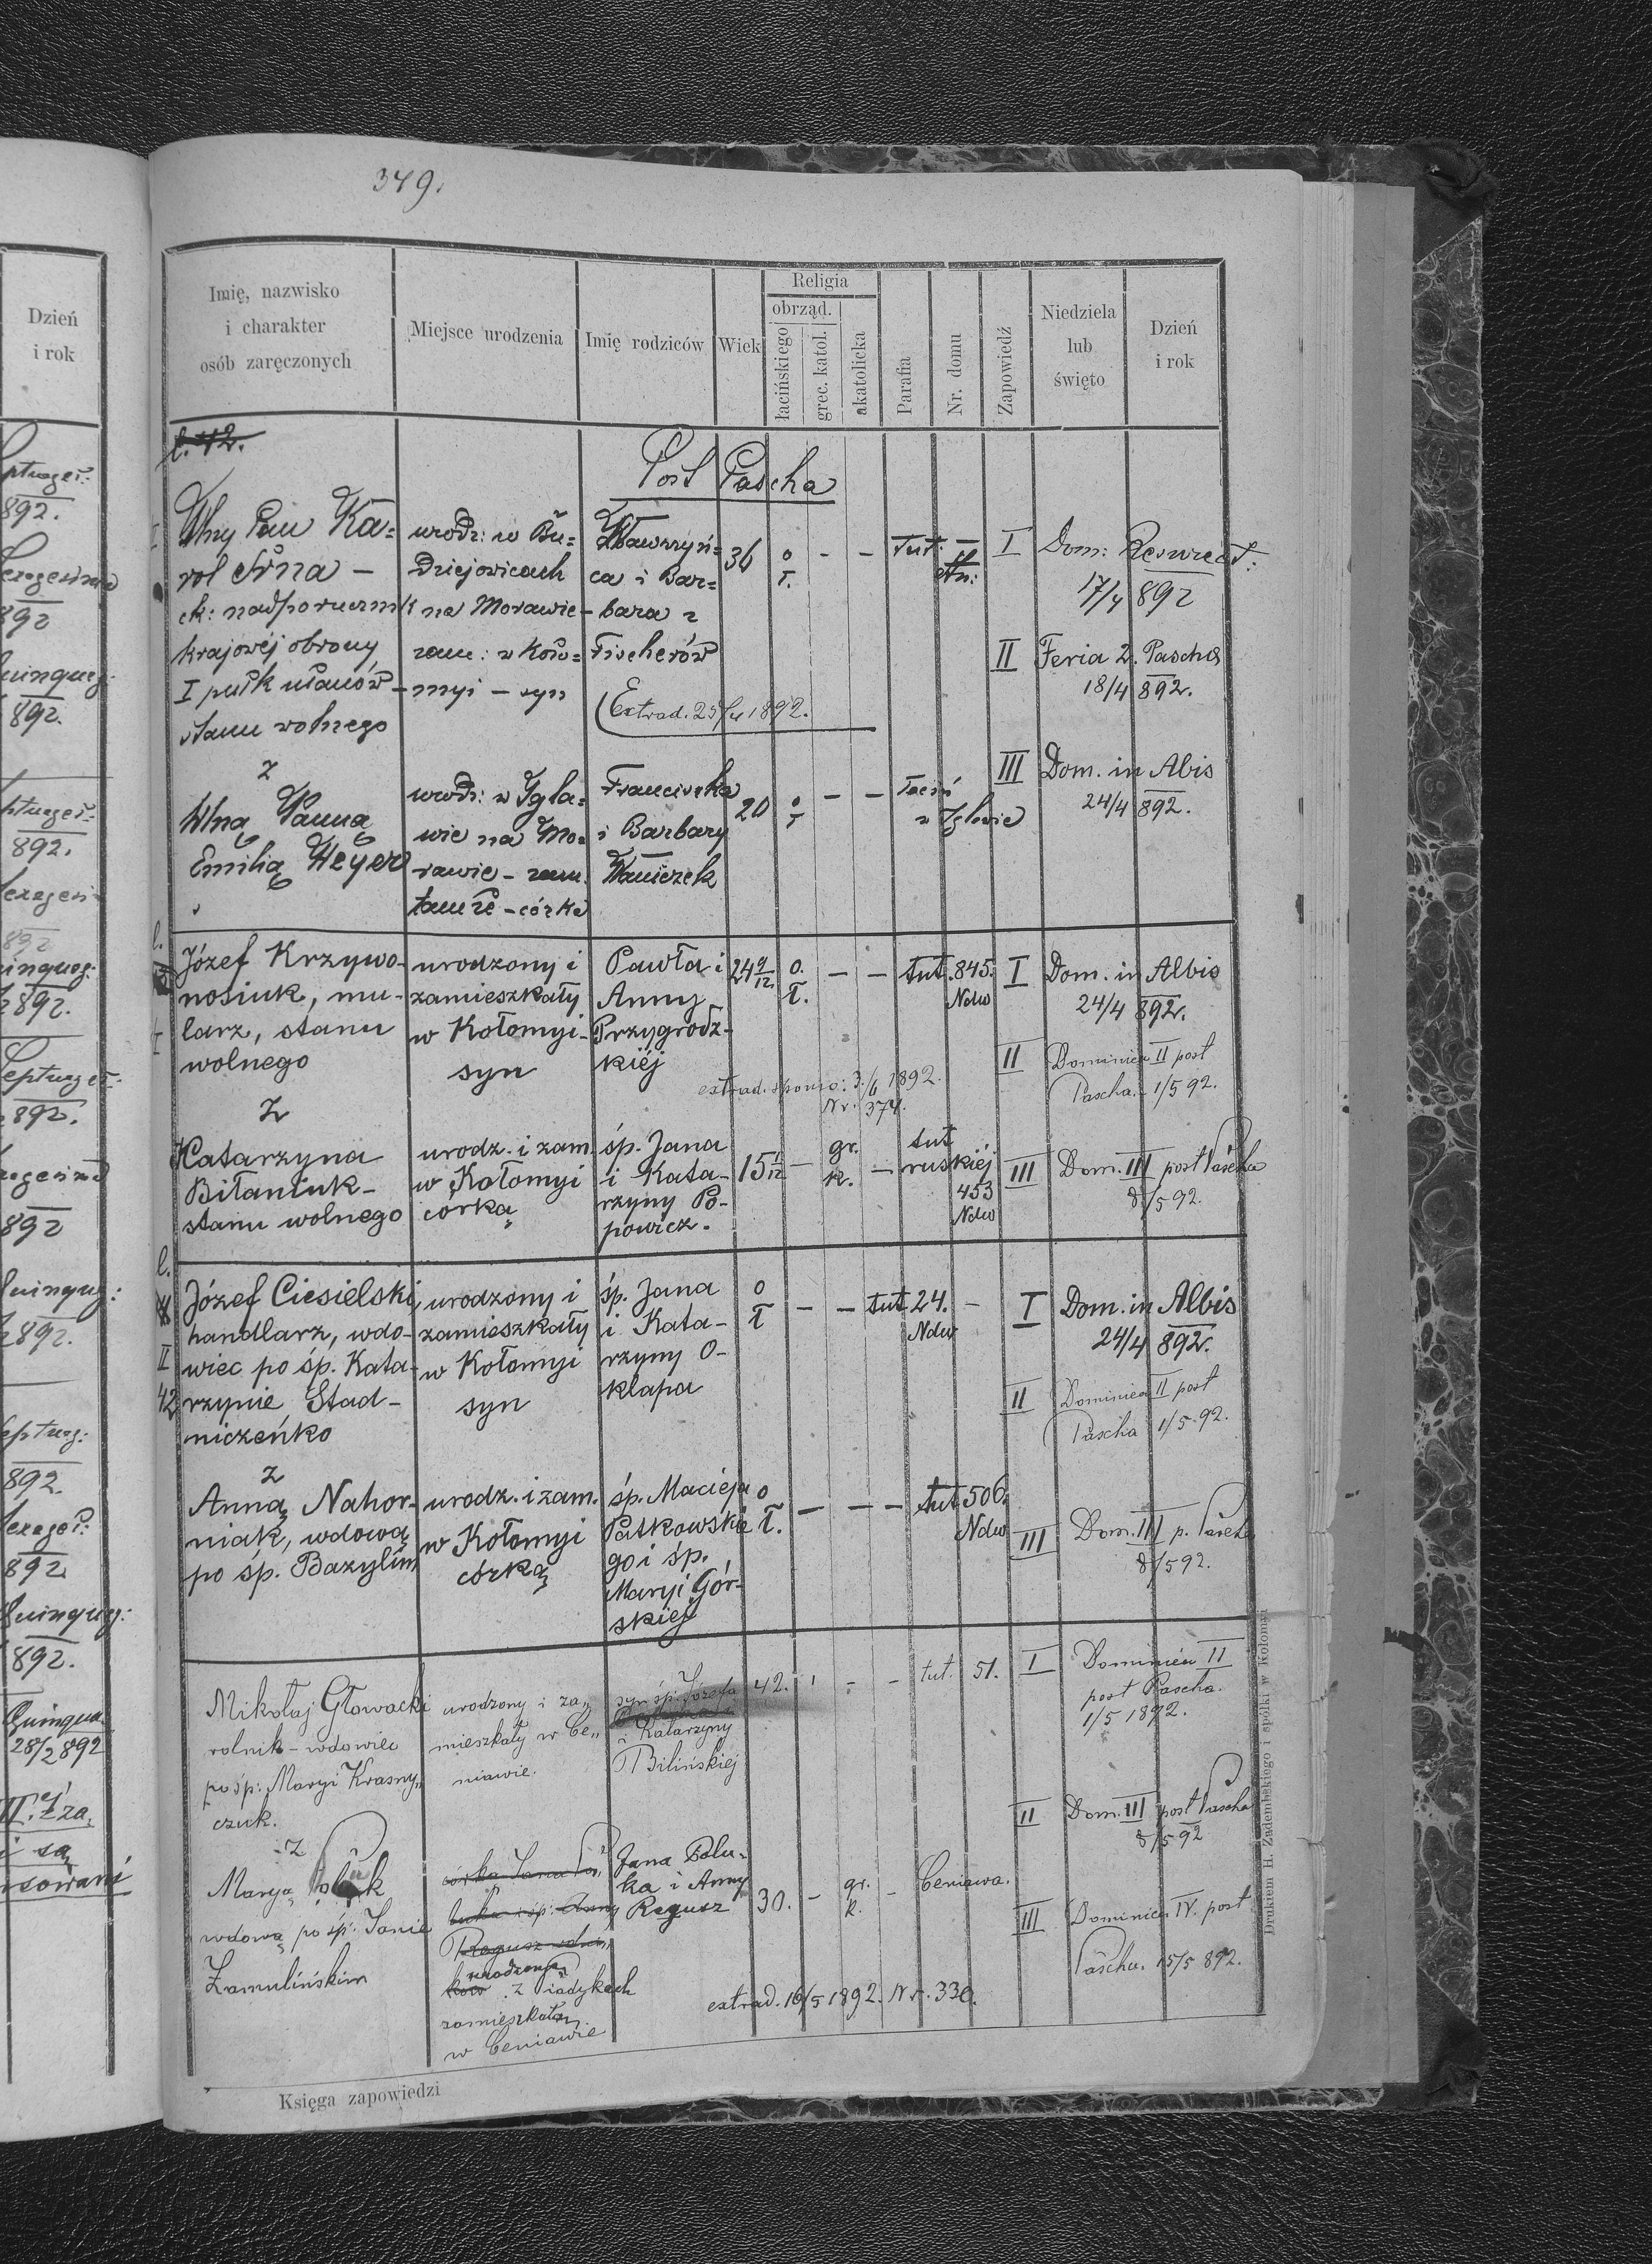 349.
Dzień
i rok
Imię, nazwisko
i charakter
osób zaręczonych
Miejsce urodzenia
Imię rodziców
Wiek
Religia
obrząd.
łacińskiego
grec. katol.
akatolicka
Parafia
Nr. domu
Zapowiedź
Niedziela
lub
święto
Dzień
i rok
l. 42.
Post Pascha
Wny Pan Ka=
rol
ck: nadporucznik
krajowéj obrony
I pułk ułanów -
stanu wolnego
urodz: w Bu=
dziejowicach
na Morawie -
zam: w Koło=
myi - syn
Wawrzyń=
ca i Bar=
bara z
Fischerów
36
o
ł.
-
-
tut.
I
Dom: Resurect:
17/4 892
II
Feria 2. Pascha
18/4 892.
(Extrad. 25/4 1892.
z
Wną Panną
Emilią Heyer
urodz: w Igla=
wie na Mo=
rawie - zam.
tamże - córka
Franciszka
i Barbary
Waniczek
20
o
ł
-
-
w Iglavie
III
Dom. in Abis
24/4 892.
l.
Józef Krzywo-
nosiuk, mu-
larz, stanu
wolnego
urodzony i
zamieszkały
w Kołomyi-
syn
Pawła i
Anny
Przygrodz-
kiéj
24 9/12
o.
ł.
-
-
tut.
845.
Ndw
I
Dom. in Albis
24/4 892.
II
Dominica II post
Pascha. 1/5 92.
extrad. sponso: 3/6 1892.
Nr. 374.
Z
Katarzyna
Biłaniuk-
stanu wolnego
urodz. i zam.
w Kołomyi
córką
śp. Jana
i Kata-
rzyny Po-
powicz.
15 1/12
-
gr.
k.
-
tut
ruskiéj
453
Ndw
III
Dom. III post Pascha
8/5 92.
l.
II
42
Józef Ciesielski,
handlarz, wdo-
wiec po śp. Kata-
rzynie Stad-
niczeńko
urodzony i
zamieszkały
w Kołomyi
syn
śp. Jana
i Kata-
rzyny O-
klapa
o
ł
-
-
tut
24.
Ndw
-
I
Dom. in Albis
24/4 892.
II
Dominica II post
Pascha 1/5 92.
z
Anną Nahor-
niak, wdową
po śp. Bazylim
urodz. i zam.
w Kołomyi
córką
śp. Macieja
Patkowskie
go i śp.
Maryi Gór-
skiej
o
ł.
-
-
-
tut
506.
Ndw
III
Dom. III p. Pascha
8/5 92.
Mikołaj Głowacki
rolnik - wdowiec
po śp: Maryi Krasny„
czuk.
urodzony i za„
mieszkały w Ce„
niawie.
syn śp: Józefa
i Katarzyny
Bilińskiej
42.
1
-
-
tut.
51.
I
Dominica II
post Pascha.
1/5 1892.
II
Dom. III post Pascha
8/5 92
-z
Maryą
wdową po śp: Janie
Zamulińskim
urodzoną
z Siadykach
zamieszkałą
w Ceniawie
Jana Połu-
ka i Anny
Regusz
30.
-
gr.
k.
-
Ceniawa.
III
Dominica IV. post
Pascha. 15/5 892.
extrad. 16/5 1892. Nr. 330.
Księga zapowiedzi
Drukiem H. Zadembskiego i spółki w Kołomyi